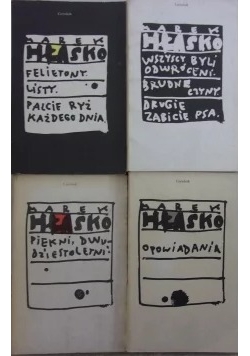 Czytelnik
MAREK
HŁASKO
FELIETONY.
LISTY.
PALCIE RYŻ
KAŻDEGO DNIA.
Czytelnik
MAREK
HŁASKO
WSZYSCY BYLI
ODWRÓCENI.
BRUDNE
CZYNY.
DRUGIE
ZABICIE PSA.
Czytelnik
MAREK
HŁASKO
PIĘKNI, DWU-
DZIESTOLETNI.
Czytelnik
MAREK
HŁASKO
OPOWIADANIA